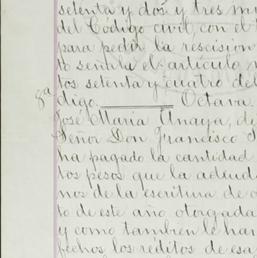 setenta y dos y tres mi
del Código civil, con el
para pedir la rescisión
to señala el artículo
tos setenta y cuatro del
8a digo. Octava.
José María Anaya, de
Señor Don Francisco
ha pagado la cantidad
tos pesos que la adeud
nos de la escritura de
to de este año, otorgada
y como también le han
fechos los réditos de esa